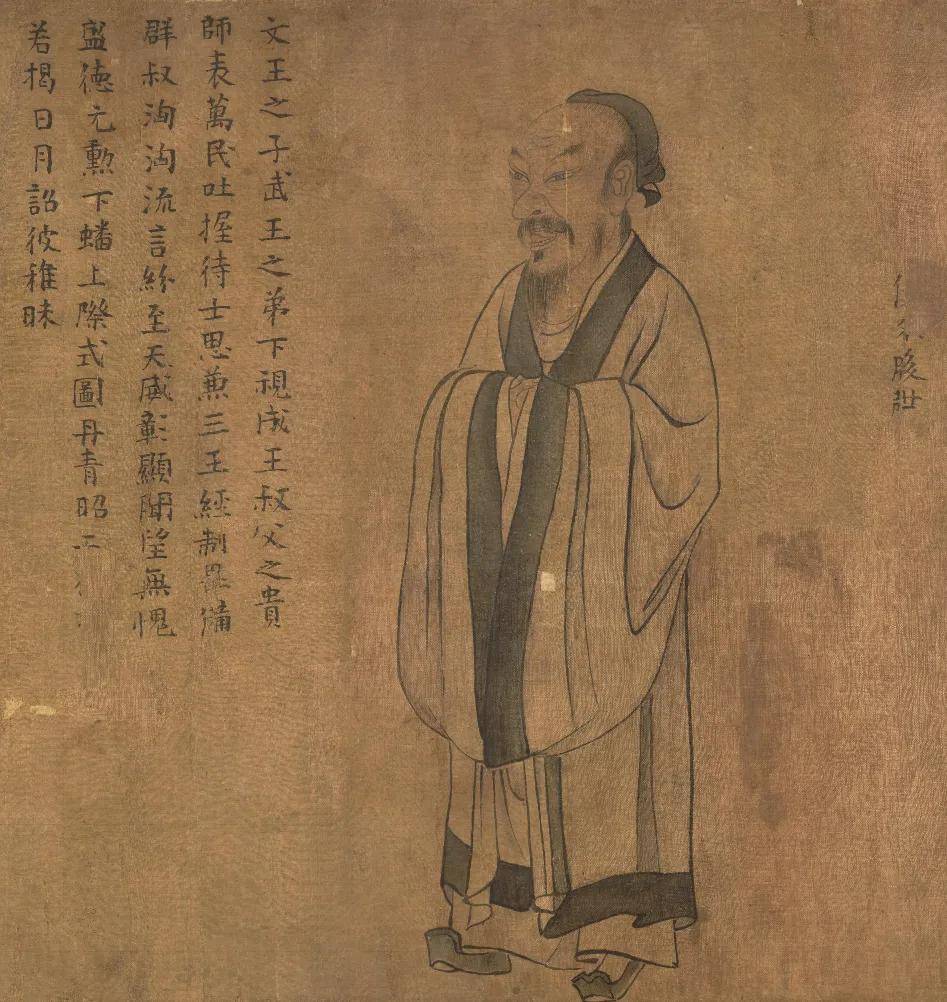 文王之子武王之弟下視成王叔父之貴
師表萬民吐握待士思兼三王經制備
群叔洶洶流言紛至天威彰顯聞望無愧
盛德元勳下蟠上際式圖丹青昭
若揭日月詔彼稚昧